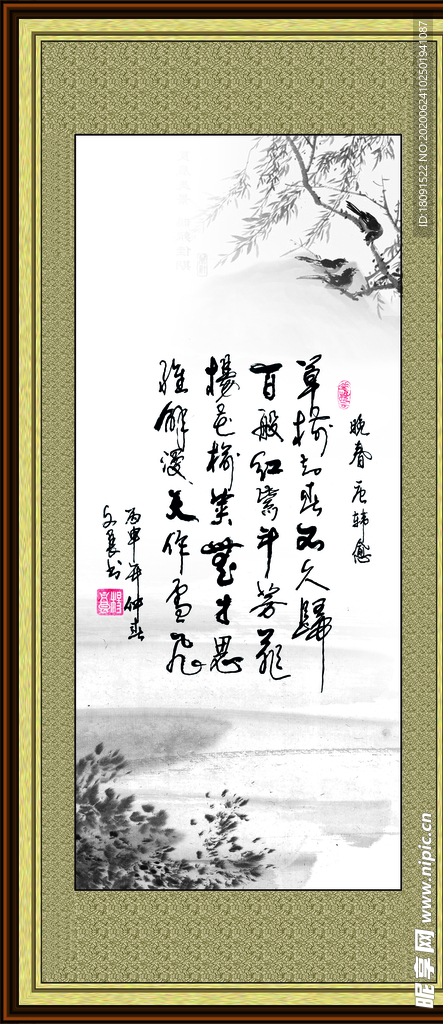 晚春 唐韩愈
草树知春不久归
百般红紫斗芳菲
杨花榆荚无才思
惟解漫天作雪飞
丙申年仲春
文晨书
ID:18091522 NO:20200624102501941087
昵享网 www.nipic.cn